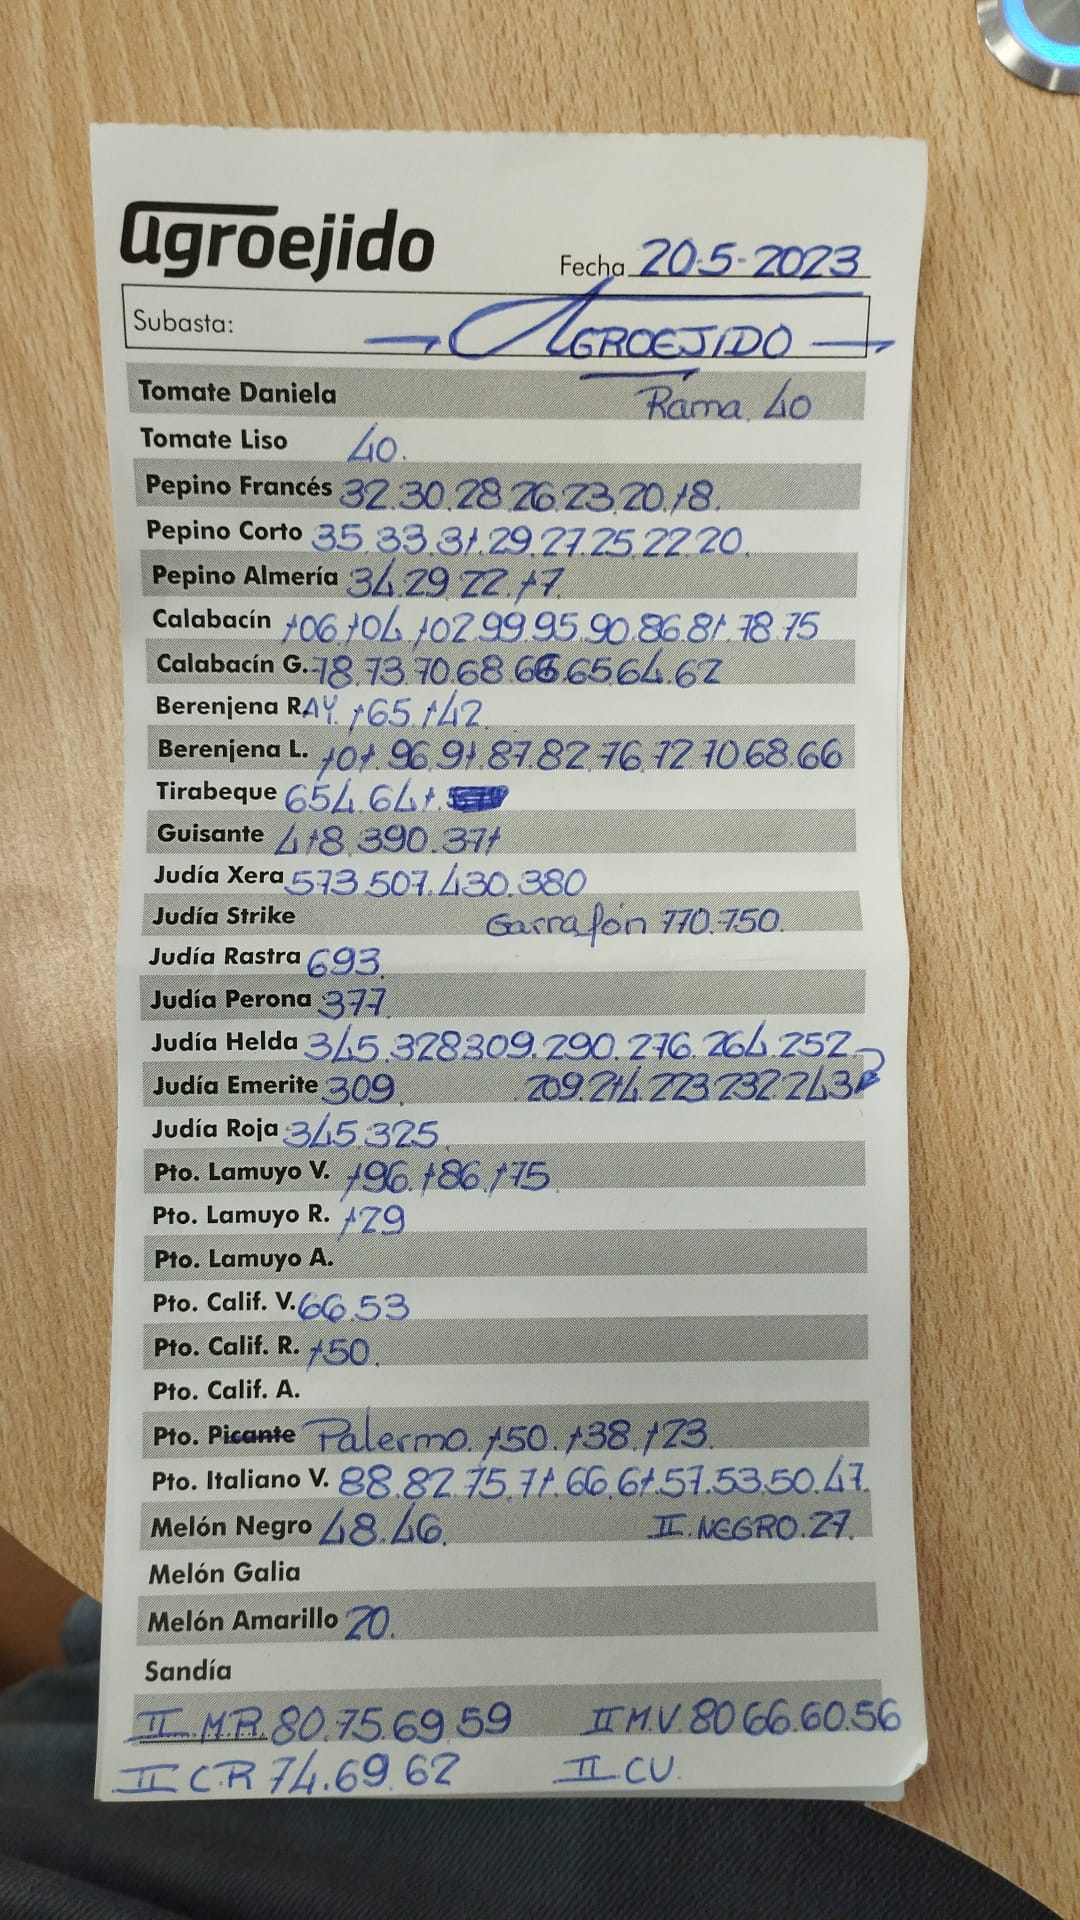 agroejido
Fecha 20-5-2023
Subasta: → AGROEJIDO →
Tomate Daniela Rama. 40
Tomate Liso 40.
Pepino Francés 32.30.28.26.23.20.18.
Pepino Corto 35.33.31.29.27.25.22.20.
Pepino Almería 34.29.22.17.
Calabacín 106.104.102.99.95.90.86.81.78.75
Calabacín G. 78.73.70.68.66.65.64.62
Berenjena RAY. 165.142
Berenjena L. 101.96.91.87.82.76.72.70.68.66
Tirabeque 654.641.
Guisante 418.390.371
Judía Xera 573.507.430.380
Judía Strike Garrafón 770.750.
Judía Rastra 693.
Judía Perona 377.
Judía Helda 345.328.309.290.276.264.252
Judía Emerite 309. 209.214.223.232.243
Judía Roja 345.325.
Pto. Lamuyo V. 196.186.175.
Pto. Lamuyo R. 129
Pto. Lamuyo A.
Pto. Calif. V. 66.53
Pto. Calif. R. 150.
Pto. Calif. A.
Pto. Picante Palermo. 150.138.123.
Pto. Italiano V. 88.82.75.71.66.61.57.53.50.47.
Melón Negro 48.46. II.NEGRO.27.
Melón Galia
Melón Amarillo 20.
Sandía
II.M.R.80.75.69.59 II M.V.80.66.60.56
II C.R 74.69.62 II CV.